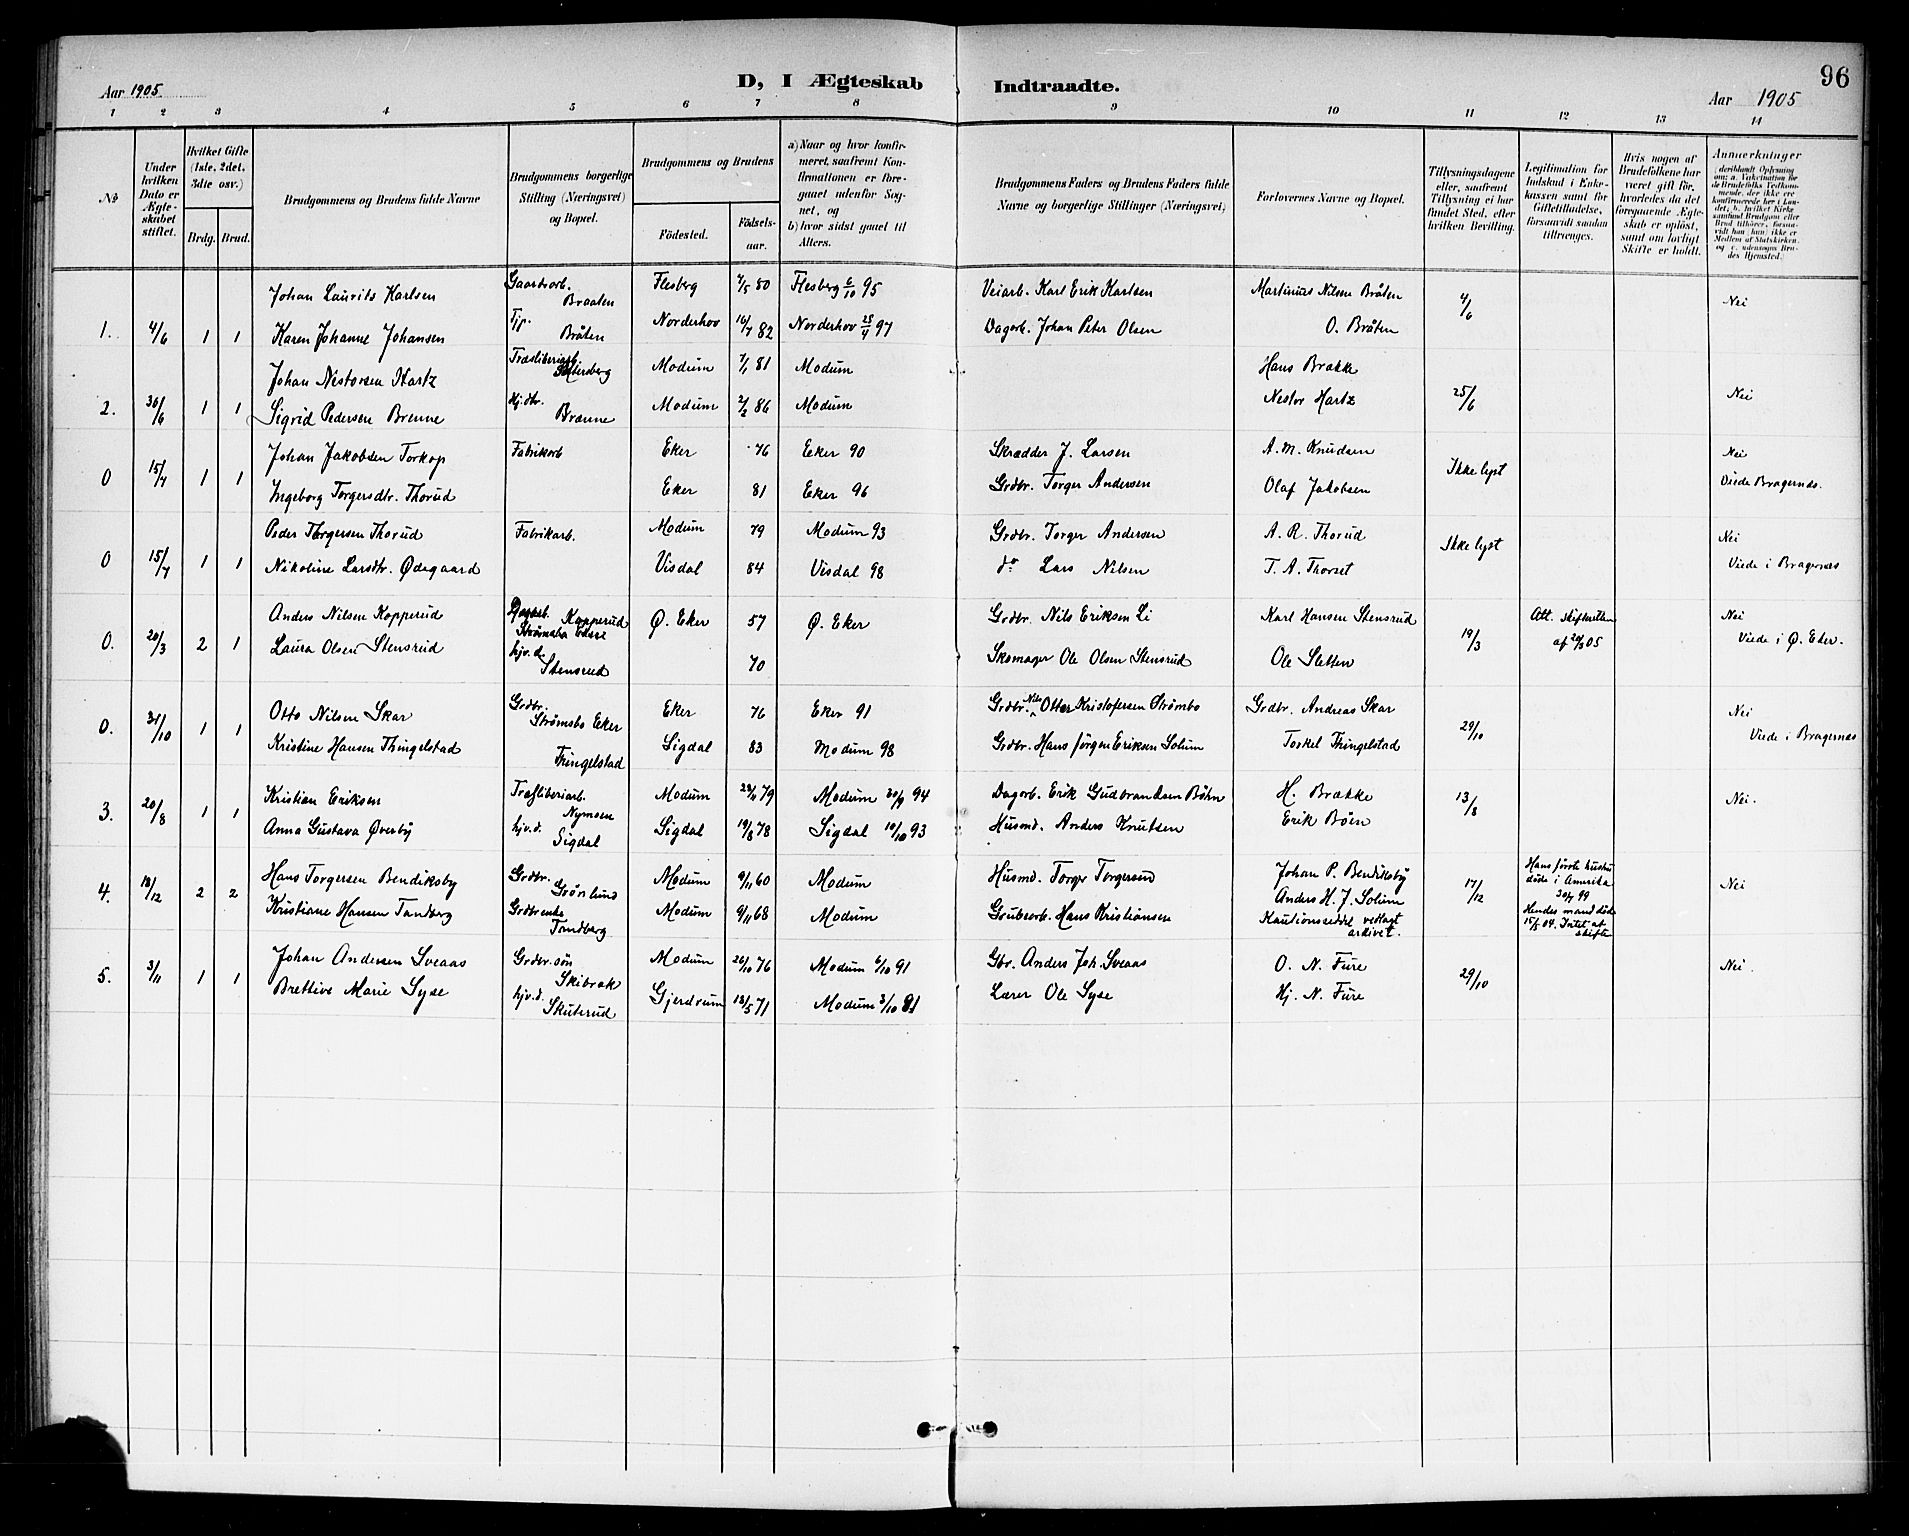 96
Aar 1905.
D, I Ægteskab
Indtraadte.
Aar 1905
1 2 3 4 5 6 7 8 9 10 11 12 13 14
No
Under hvilken Dato er Ægteskabet stiftet.
Hvilket Gifte (1ste, 2det, 3die osv.)
Brdg. Brud.
Brudgommens og Brudens fulde Navne
Brudgommens borgerlige Stilling (Næringsvei) og Bopæl.
Brudgommens og Brudens
Födested. Födsels-aar.
a) Naar og hvor konfirmeret, saafremt Konfirmationen er foregaaet udenfor Sognet, og
b) hvor sidst gaaet til Alters.
Brudgommens Faders og Brudens Faders fulde Navne og borgerlige Stillinger (Næringsvei)
Forlovernes Navne og Bopæl.
Tillysningsdagene eller, saafremt Tillysning ei har fundet Sted, efter hvilken Bevilling.
Legitimation for Indskud i Enkekassen samt for Giftetilladelse, forsaavidt saadan tiltrænges.
Hvis nogen af Brudefolkene har været gift för, hvorledes da det foregaaende Ægteskab er oplöst, samt om lovligt Skifte er holdt.
Anmerkninger (deriblandt Oplysning om: a. Vakcination for de Brudefolks Vedkommende, der ikke ere konfirmerede her i Landet; b. hvilket Kirkesamfund Brudgom eller Brud tilhörer, forsaavidt han (hun) ikke er Medlem af Statskirken og c. udensogns Brudes Hjemsted.)
Johan Laurits Karlsen Gaardsarb. Braaten Flesberg 7/5 80 Flesberg 6/10 95 Veiarb. Karl Erik Karlsen Martinius Nilsen Bråten 4/6 Nei
1. 4/6 1 1 Karen Johanne Johansen Tjp. Bråten Norderhov 16/7 82 Norderhov 25/4 97 Dagarb. Johan Peter Olsen O. Bråten
Johan Nestorsen Hartz Træsliberiarb. Modum 7/1 81 Modum Hans Brakke
2. 30/6 1 1 Sigrid Pedersen Brenne Hj.dtr. Brænne Modum 2/2 86 Modum Nestor Hartz 25/6 Nei
Johan Jakobsen Torkop Fabrikarb Eker 76 Eker 90 Skrædder J. Larsen A. M. Knudsen Nei
0 15/7 1 1 Ingeborg Torgersdtr. Thorud Eker 81 Eker 96 Grdbr. Torger Andersen Olaf Jakobsen Ikke lyst Viede Bragernæs.
Peder Thorgersen Thorud Fabrikarb. Modum 79 Modum 93 Grdbr. Torger Andersen A. R. Thorud Nei
0 15/7 1 1 Nikoline Larsdtr. Ødegaard Visdal 84 Visdal 98 do Lars Nilsen T. A. Thorset Ikke lyst Viede i Bragernæs
Anders Nilsen Kopperud Kopperud Ø. Eker 57 Ø. Eker Grdbr. Nils Eriksen Li Karl Hansen Stensrud Nei
0. 20/3 2 1 Laura Olsen Stensrud hjv. d. Stensrud 70 Skomager Ole Olsen Stensrud Ole Sletten 19/3 Att. af 20/3 05 Viede i Ø. Eker.
Otto Nilsen Skar Grdbr. Strømsbo Eker Eker 76 Eker 91 Grdbr. Nils Otter Kristofersen Strømbo Grdbr. Andreas Skar Nei
0. 31/10 1 1 Kristine Hansen Thingelstad Thingelstad Sigdal 83 Modum 98 Grdbr. Hans Jørgen Eriksen Solum Torkel Thingelstad 29/10 Viede i Bragernæs
Kristian Eriksen Træsliberiarb. Nymoen Modum 79 Modum 30/9 94 Dagarb. Erik Gudbrandsen Böhn H. Brække
3. 20/8 1 1 Anna Gustava Øverby hjv.d. Sigdal Sigdal 19/8 78 Sigdal 10/10 93 Husmd. Anders Knutsen Erik Böen 13/8 Nei.
Hans Torgersen Bendiksby Grdbr. Grönlund Modum 9/11 60 Modum Husmd. Torger Torgersen Johan P. Bendiksby Hans første hustru döde i Amerika 20/7 99
4. 18/12 2 2 Kristiane Hansen Tandberg Grdbr.enke Tandberg Modum 9/11 68 Modum Grubearb. Hans Kristiansen Anders H. J. Solum Kautionsseddel vedlagt arkivet. 17/12 Hendes mand död 15/5 04. Intet at skifte Nei
Johan Andersen Sveaas Grdbr.søn Skibrak Modum 26/10 76 Modum 6/10 91 Gbr. Anders Joh. Sveaas O. N. Fure
5. 3/11 1 1 Brettive Marie Syse hjv.d. Skuterud Gjerdrum 18/5 71 Modum 3/10 81 Lærer Ole Syse Hj. N. Fure 29/10 Nei.